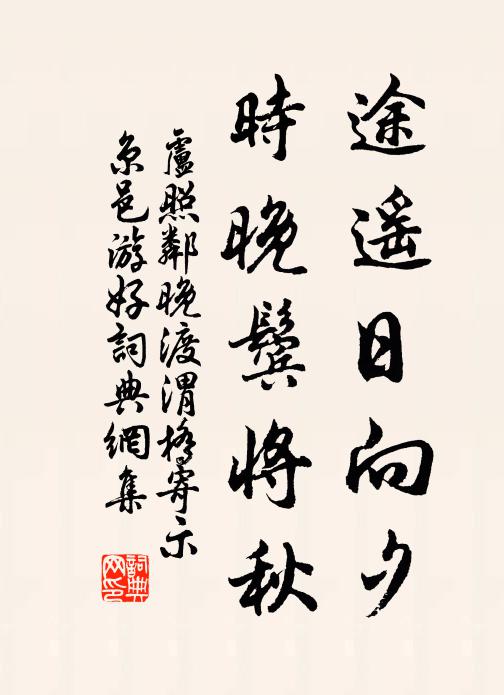 途遥日向夕
時晚鬓將秋
盧照鄰晚渡渭橋寄示
京邑游好詞典網集
詞典
网印